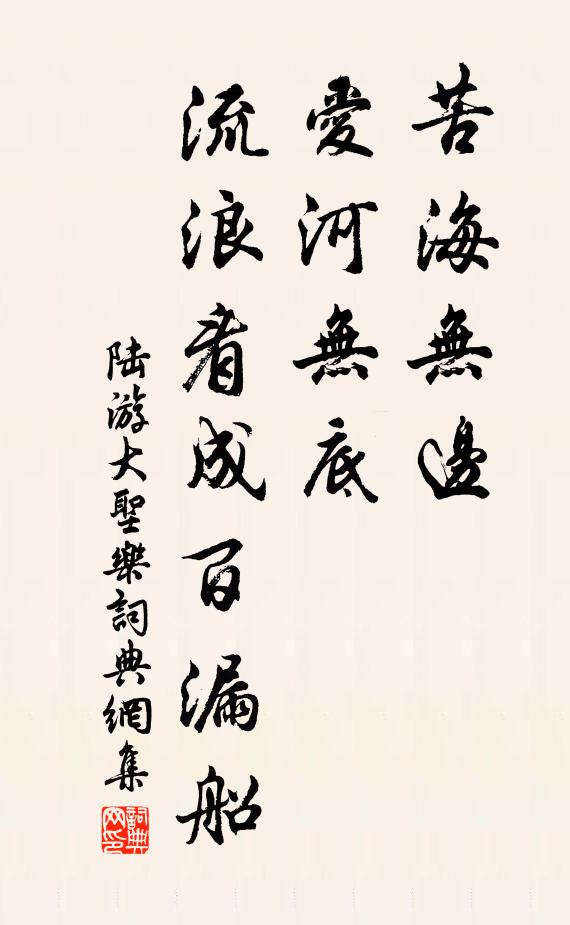 苦海無邊
愛河無底
流浪看成百漏船
陸游大聖樂詞典網集
詞典
网印